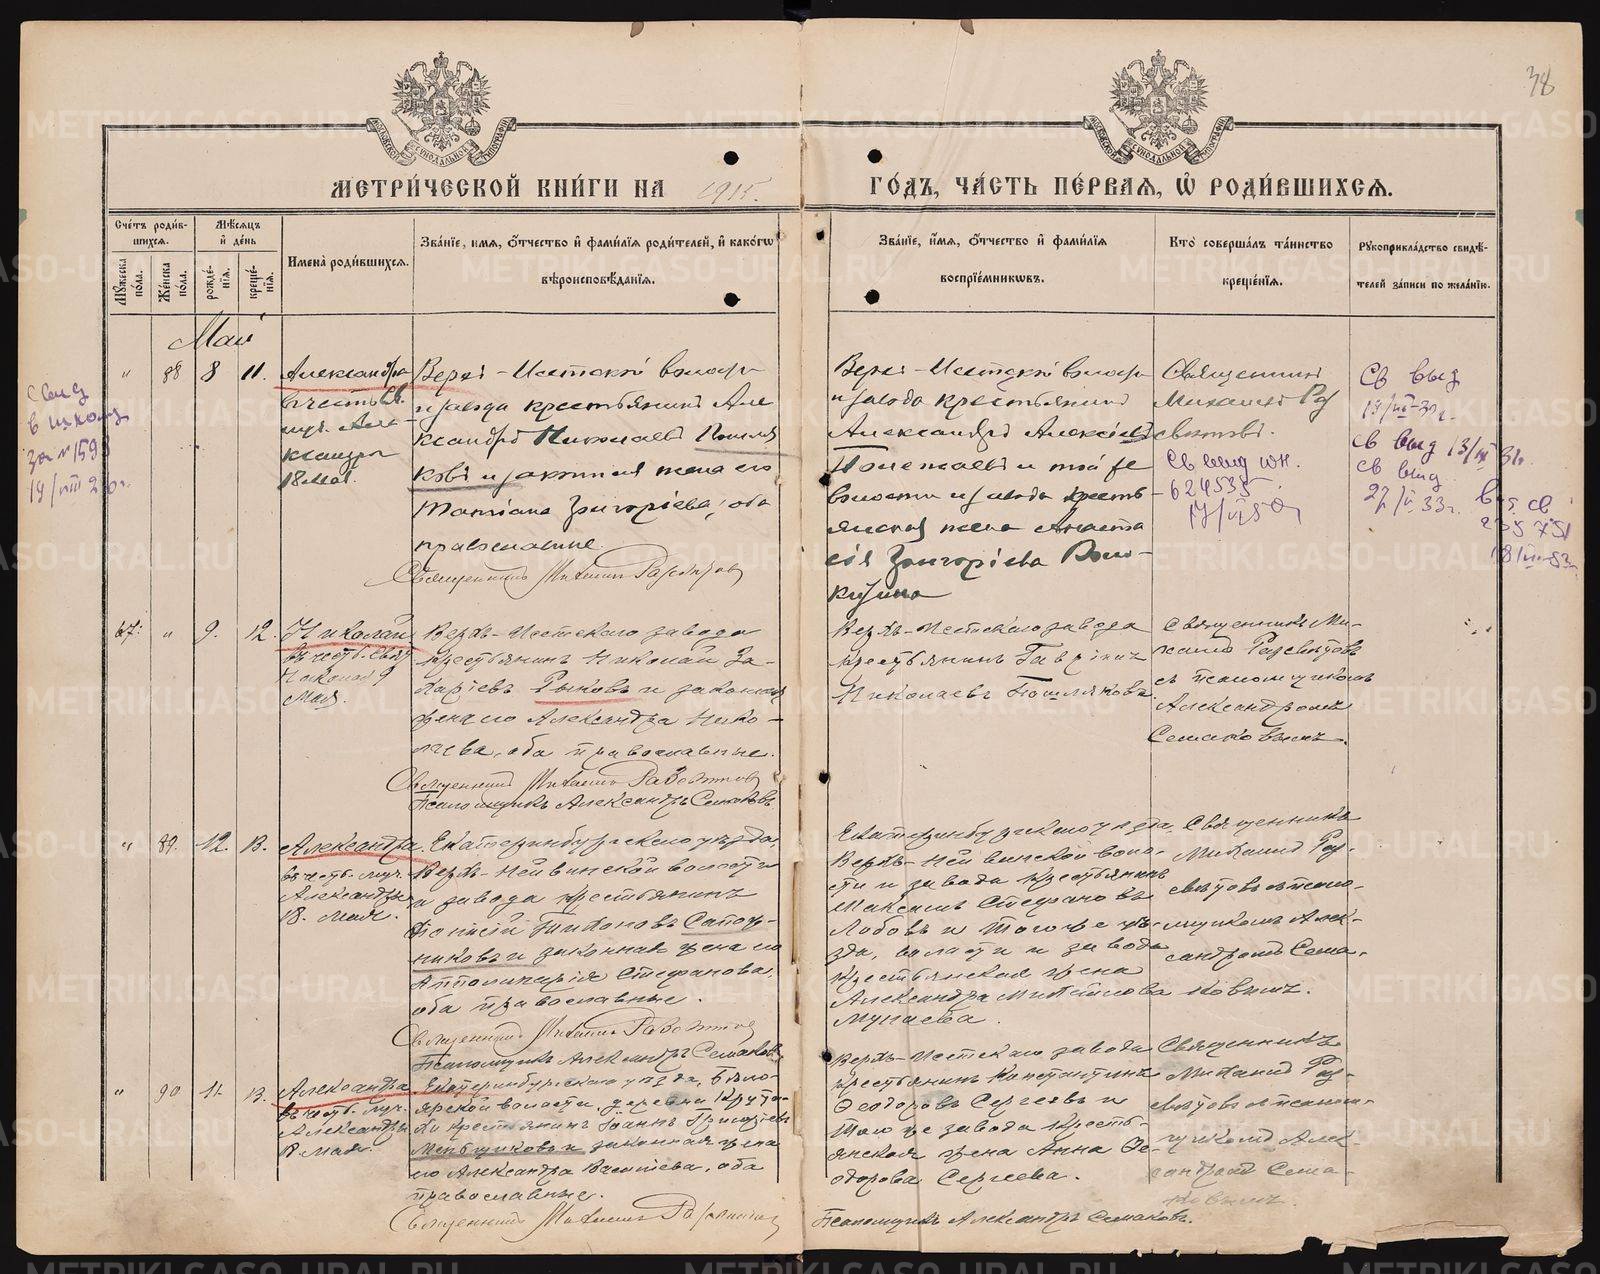 38
МЕТРИ́ЧЕСКОЙ КНИ́ГИ НА 1915.
ГО́ДЪ, ЧА́СТЬ ПЕ́РВАЯ, Ѡ҆ РОДИ́ВШИХСѦ.
Сче́тъ роди́в-
шихсѧ.
Мѣ́сѧцъ
и҆ де́нь
Мꙋ́жеска по́ла.
Же́нска по́ла.
рожде́-
нїѧ.
креще́-
нїѧ.
Имена̀ роди́вшихсѧ.
Зва́нїе, и҆мѧ, ѻ҆́тчество и҆ фами́лїѧ роди́телей, и҆ како́гѡ
вѣроисповѣ́данїѧ.
Зва́нїе, и҆́мѧ, ѻ҆́тчество и҆ фами́лїѧ
воспрїе́мникѡвъ.
Кто̀ соверша́лъ та́инство
креще́нїѧ.
Рꙋкоприкла́дство свидѣ́-
телей за́писи по жела́нїю.
Май
" 88 8 11.
Александра
въ честь св.
муч. Але-
ксандры
18 Мая.
Верх-Исетской волости
и завода крестьянинъ Але
ксандръ Николаевъ
и законная жена его
Татiана Григорiева, оба
православные.
Священникъ Михаилъ
Верх-Исетской волости
и завода крестьянинъ
Александръ Алексiевъ
и той же
волости и завода кресть-
янская жена Анаста
сiя Григорiева
Священникъ
Михаилъ Раз
свѣтовъ.
Св выд
в школу
за № 1598
Св выд
св выд 13/
св выд
27/V 33г.
св выд
624535
67. " 9. 12.
Николай
въ честь Свят.
Николая 9
Мая.
Верхъ-Исетскаго завода
крестьянинъ Николай За-
харiевъ Рыковъ и законная
жена его Александра Нико-
лаева, оба православные.
Священникъ Михаилъ
Псаломщикъ Александръ Семаковъ
Верхъ-Исетскаго завода
крестьянинъ Гаврiилъ
Николаевъ Пошляковъ
Священникъ Ми-
хаилъ Разсвѣтовъ
съ псаломщикомъ
Александромъ
Семаковымъ.
" 89. 12. 13.
Александра
въ честь муч.
Александры
18. Мая.
Екатеринбургскаго уѣзда,
Верхъ-Нейвинской волости
и завода крестьянинъ
Тихоновъ Сапож-
никовъ и законная жена его
Апполинарiя Стефанова,
оба православные.
Священникъ Михаилъ
Псаломщикъ Александръ Семаковъ
Екатеринбургскаго уѣзда,
Верхъ-Нейвинской воло-
сти и завода крестьянинъ
Максимъ Стефановъ
Лобовъ и того же уѣ-
зда, волости и завода
крестьянская жена
Александра
Священникъ
Михаилъ Раз-
свѣтовъ съ псало-
мщикомъ Алек-
сандромъ Сема-
ковымъ.
" 90 11. 13.
Александра
въ честь муч.
Александры
18 Мая.
Екатеринбургскаго уѣзда, Бѣло-
ярской волости, деревни
крестьянинъ Iоаннъ Григорiевъ
Меньщиковъ и законная жена
его Александра Васильева, оба
православные.
Священникъ Михаилъ
Верхъ-Исетскаго завода
крестьянинъ Константинъ
Феодоровъ Сергеевъ и
того же завода кресть-
янская жена Анна Фе-
одорова Сергеева.
Священникъ
Михаилъ Раз-
свѣтовъ съ псалом-
щикомъ Алек-
сандромъ Сема-
ковымъ.
Псаломщикъ Александръ Семаковъ.
METRIKI.GASO-URAL.RU